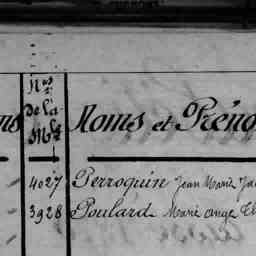 Nos
de la
Mle
Noms et Préno
4027 Perroquin Jean Marie
3928 Poulard Marie Ange